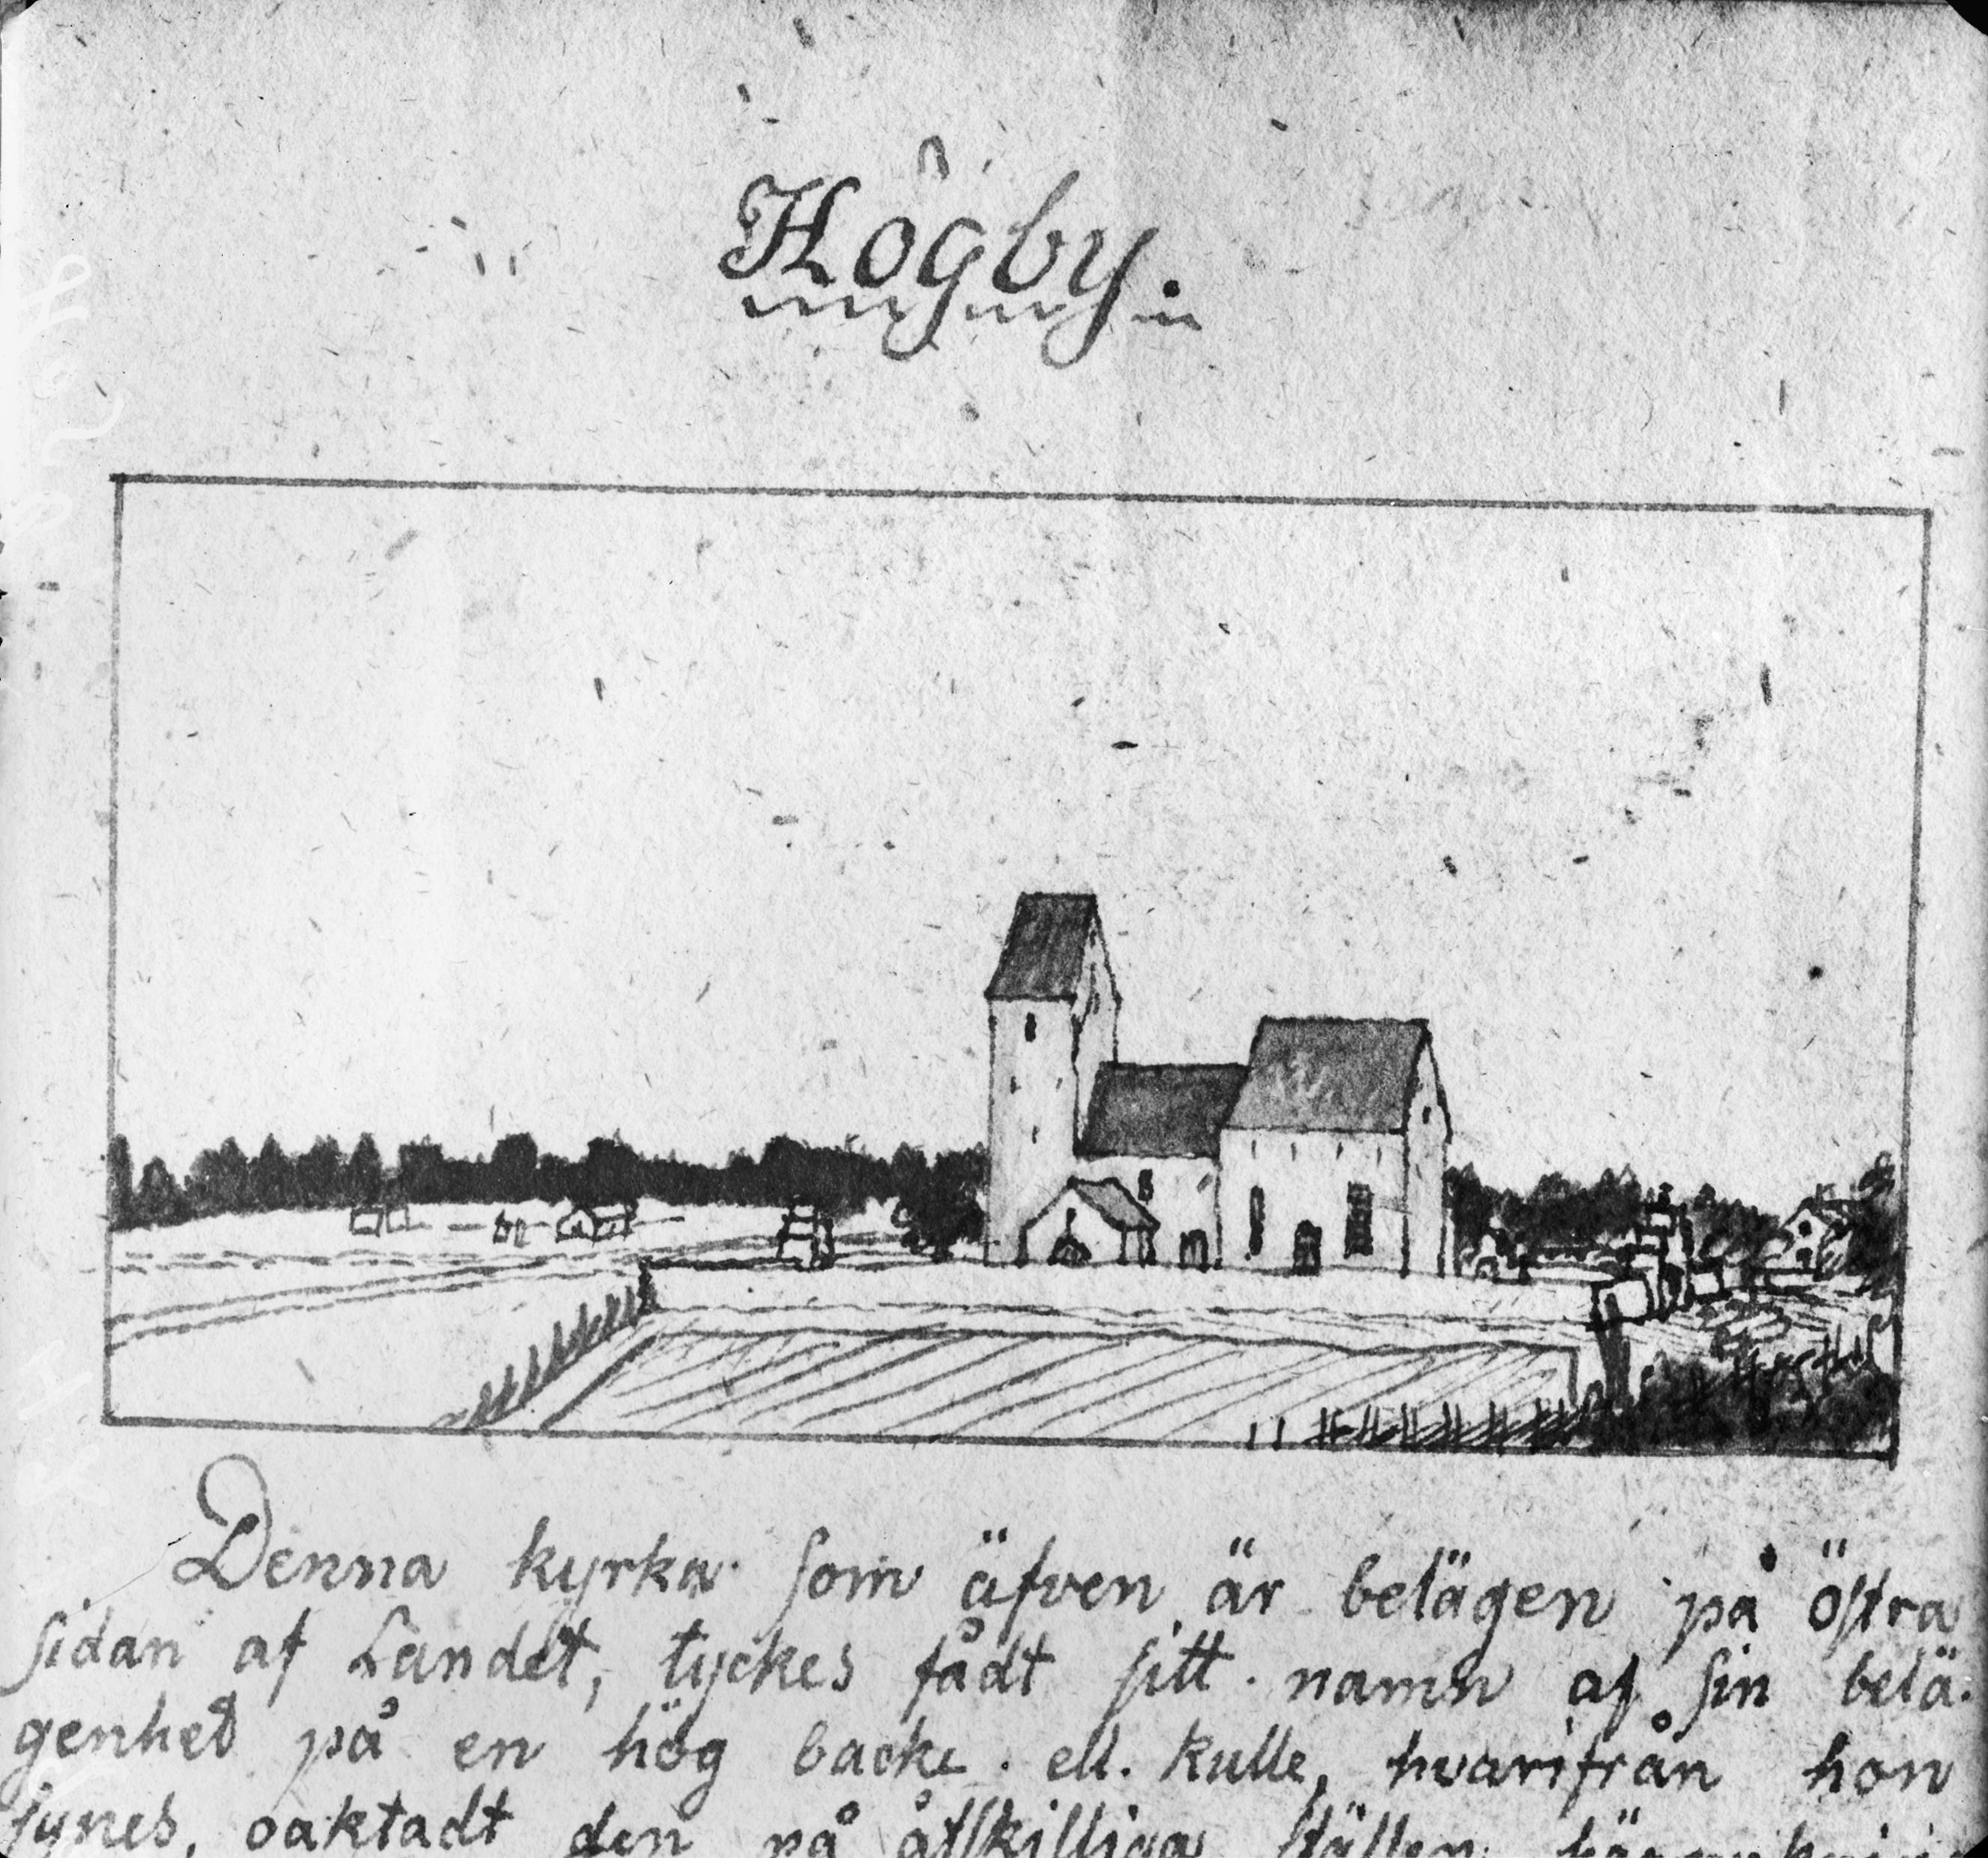 Högby.
Denna kyrka som äfven är belägen på östra
sidan af Landet, tyckes fådt sitt namn af sin belä-
genhet på en hög backe ell. kulle, hvarifrån hon
synes, oaktadt den på åtskilliga ställen